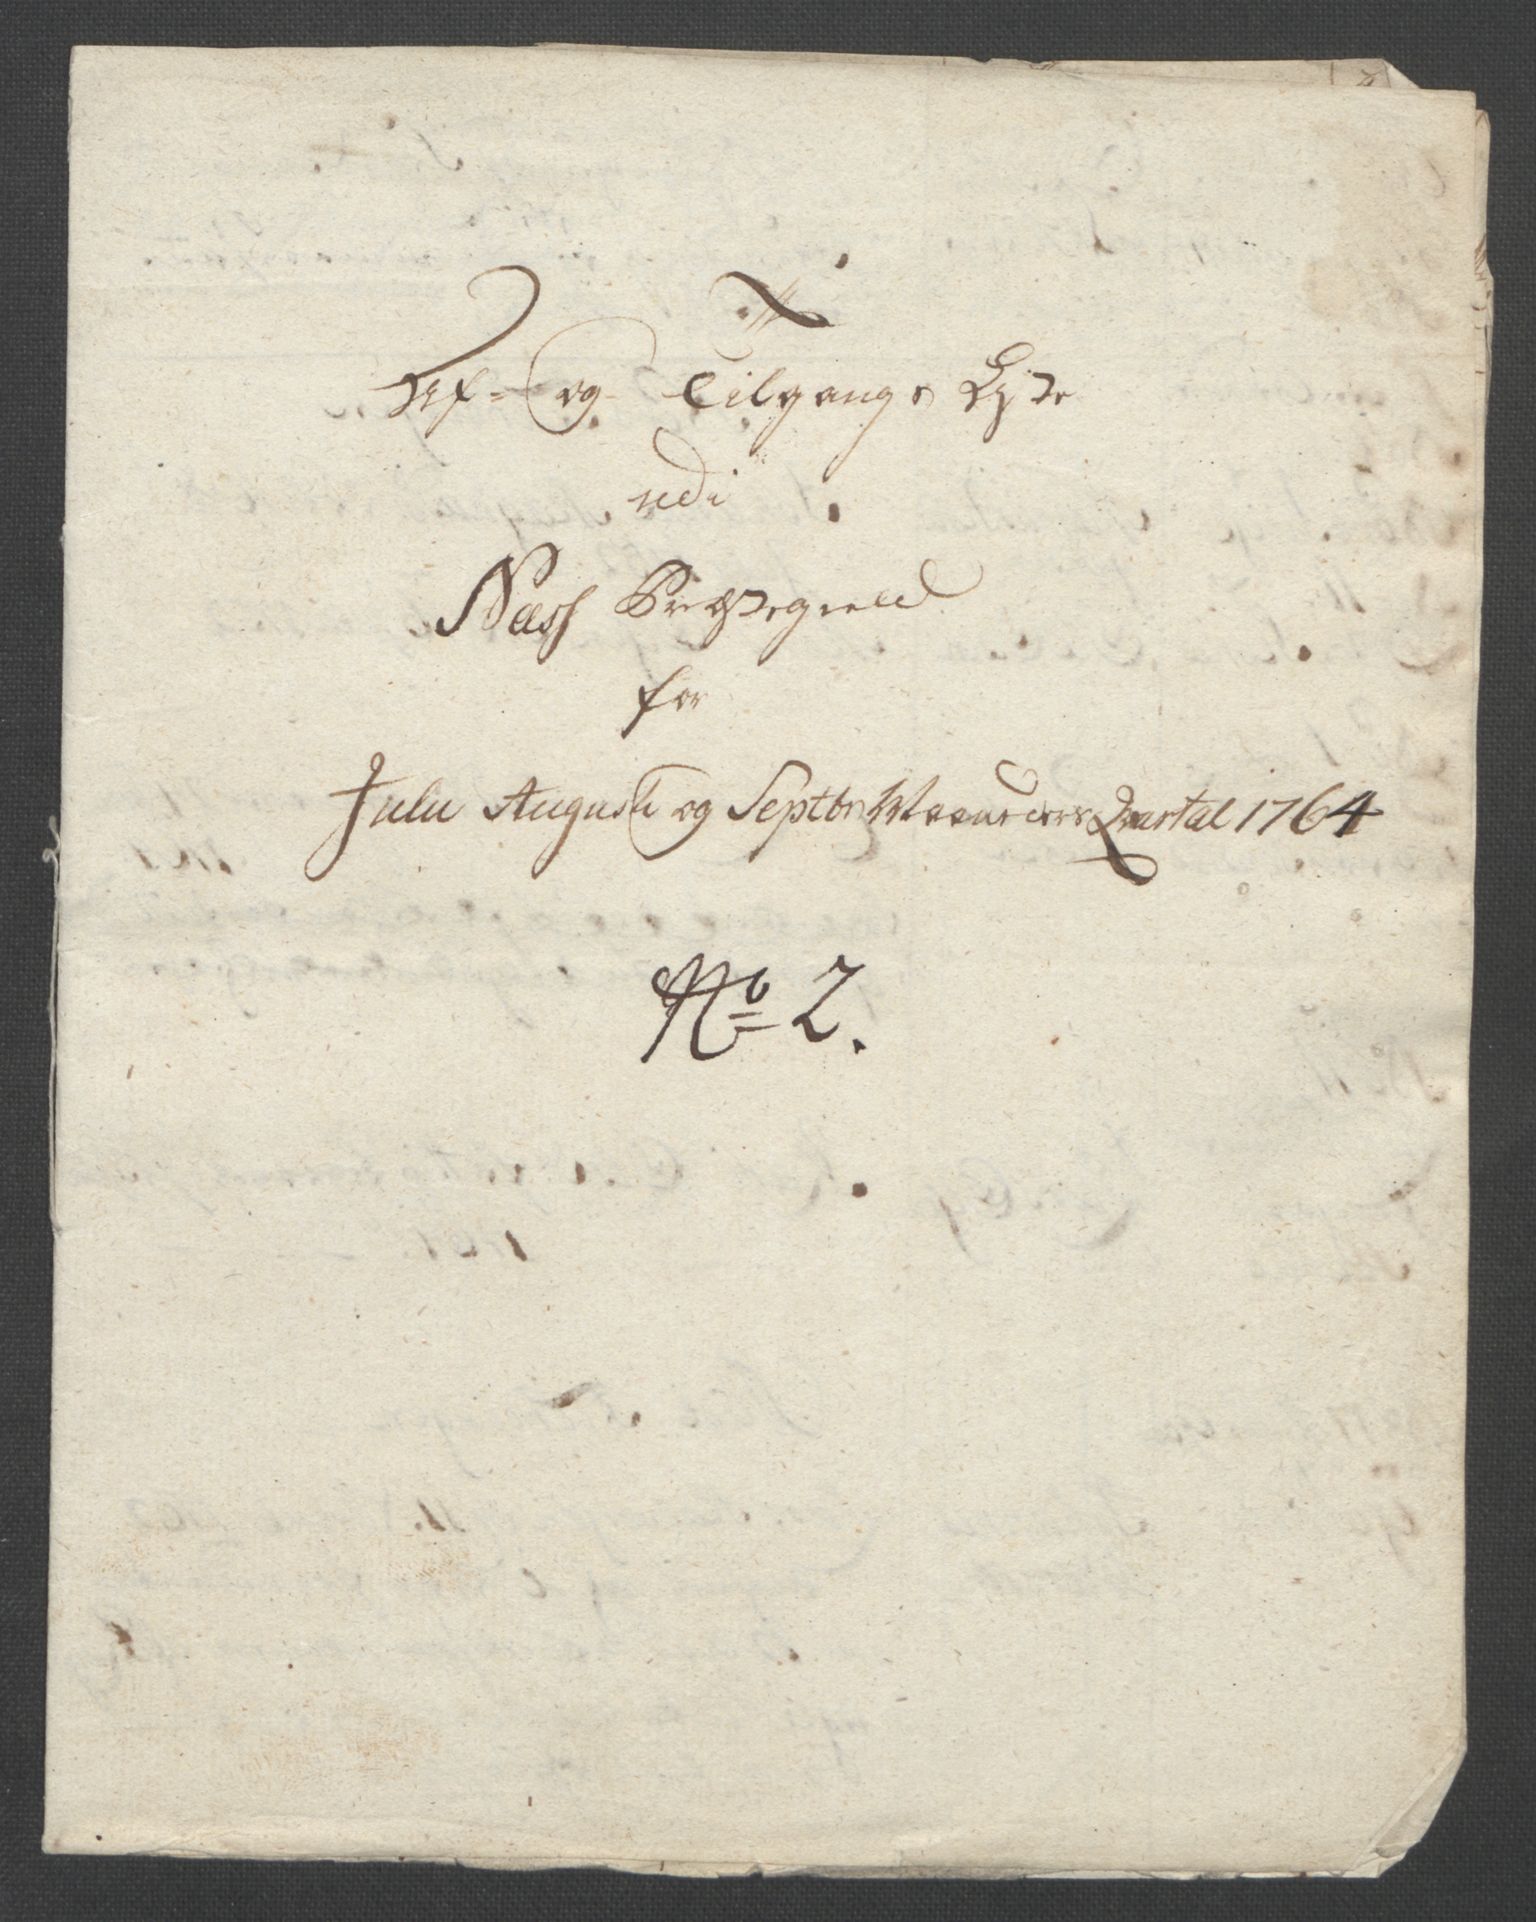 Af- og Tilgangs Lyste
udi
Næss Præstegield
for
Julii Augusti og Septbr Maaneders Qvartal 1764
No 2.